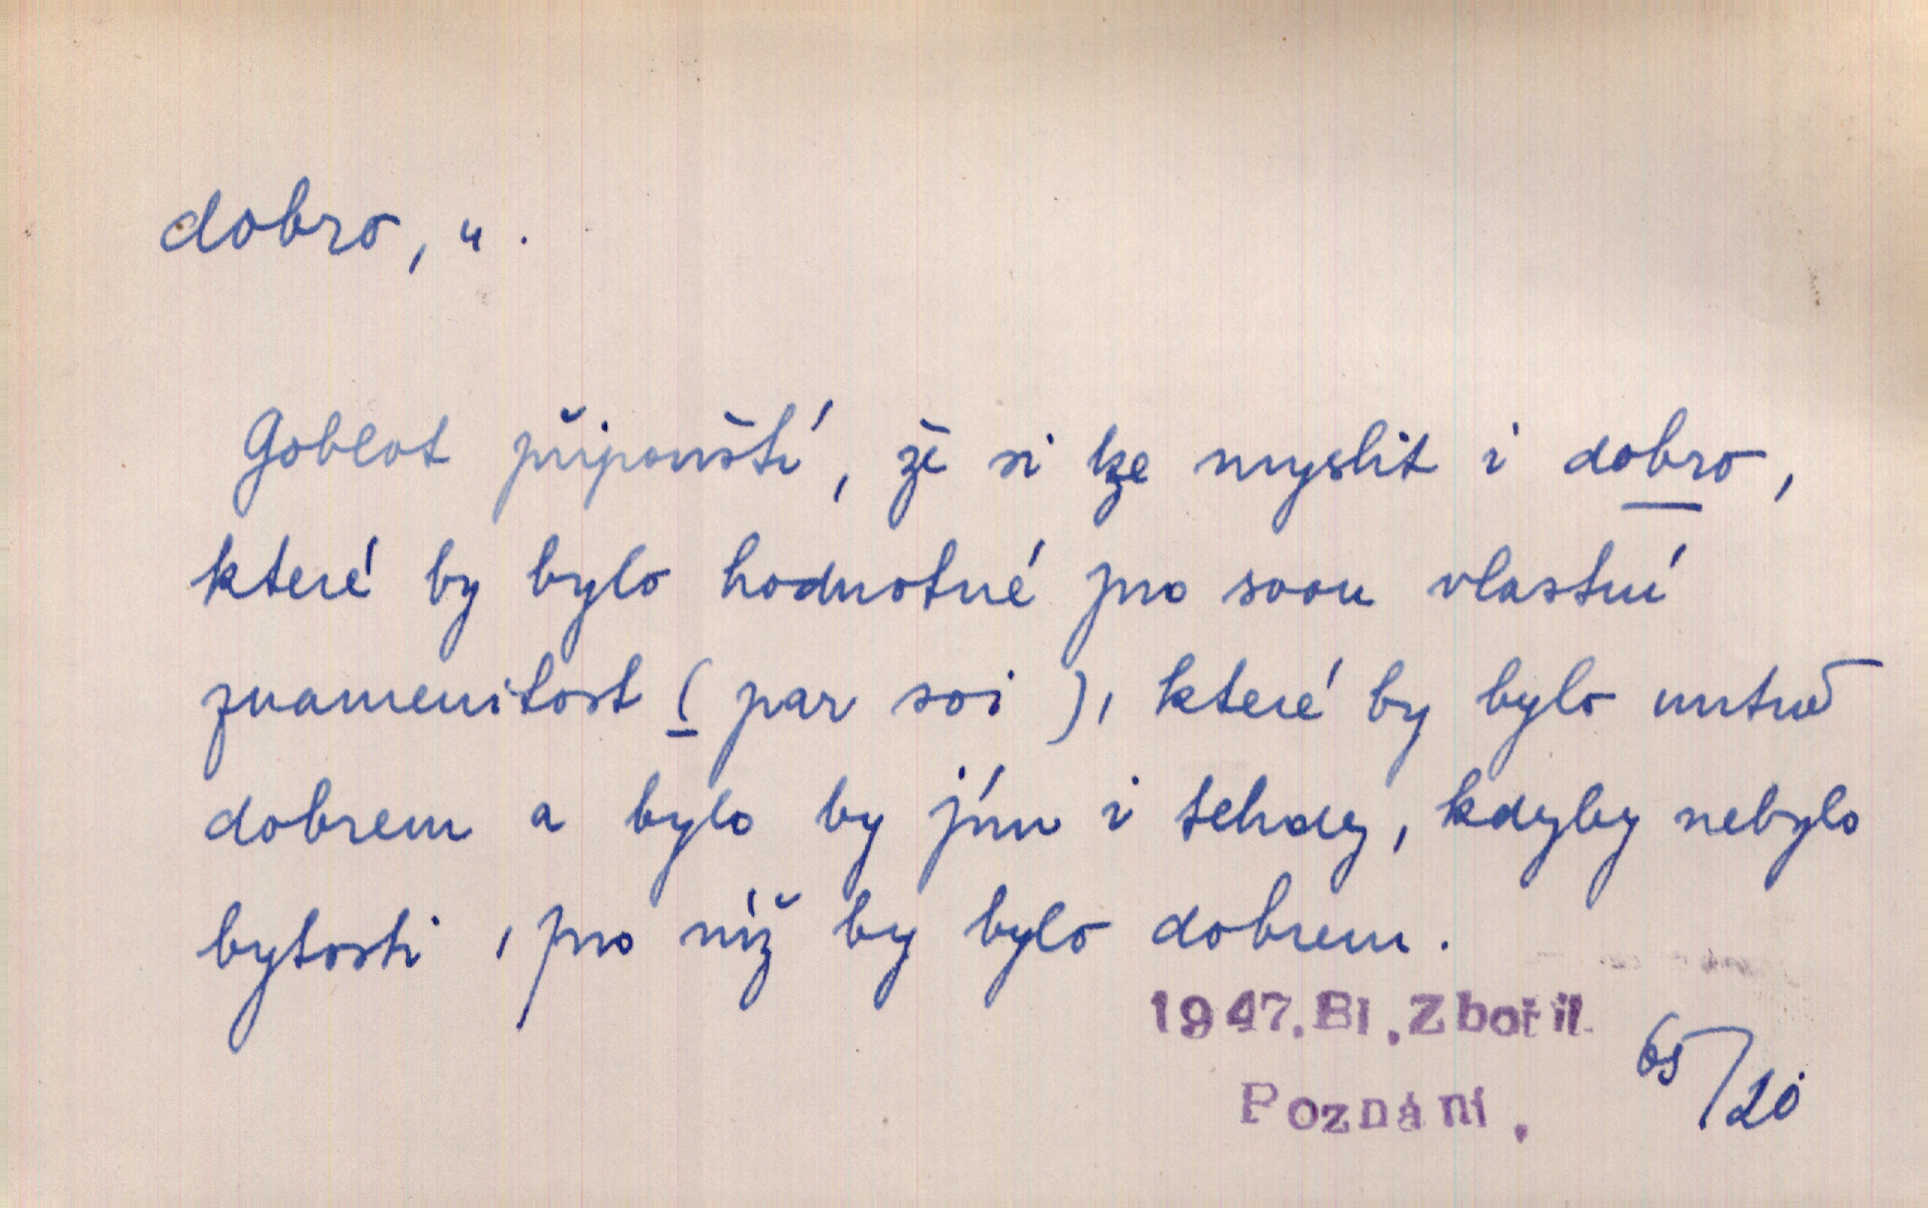 dobro, n.
Goblot připouští, že si lze myslit i dobro,
které by bylo hodnotné pro svou vlastní
znamenitost (par soi), které by bylo nutně
dobrem a bylo by jím i tehdy, kdyby nebylo
bytosti, pro niž by bylo dobrem.
1947. Bl. Zbořil
Poznání.
65/20